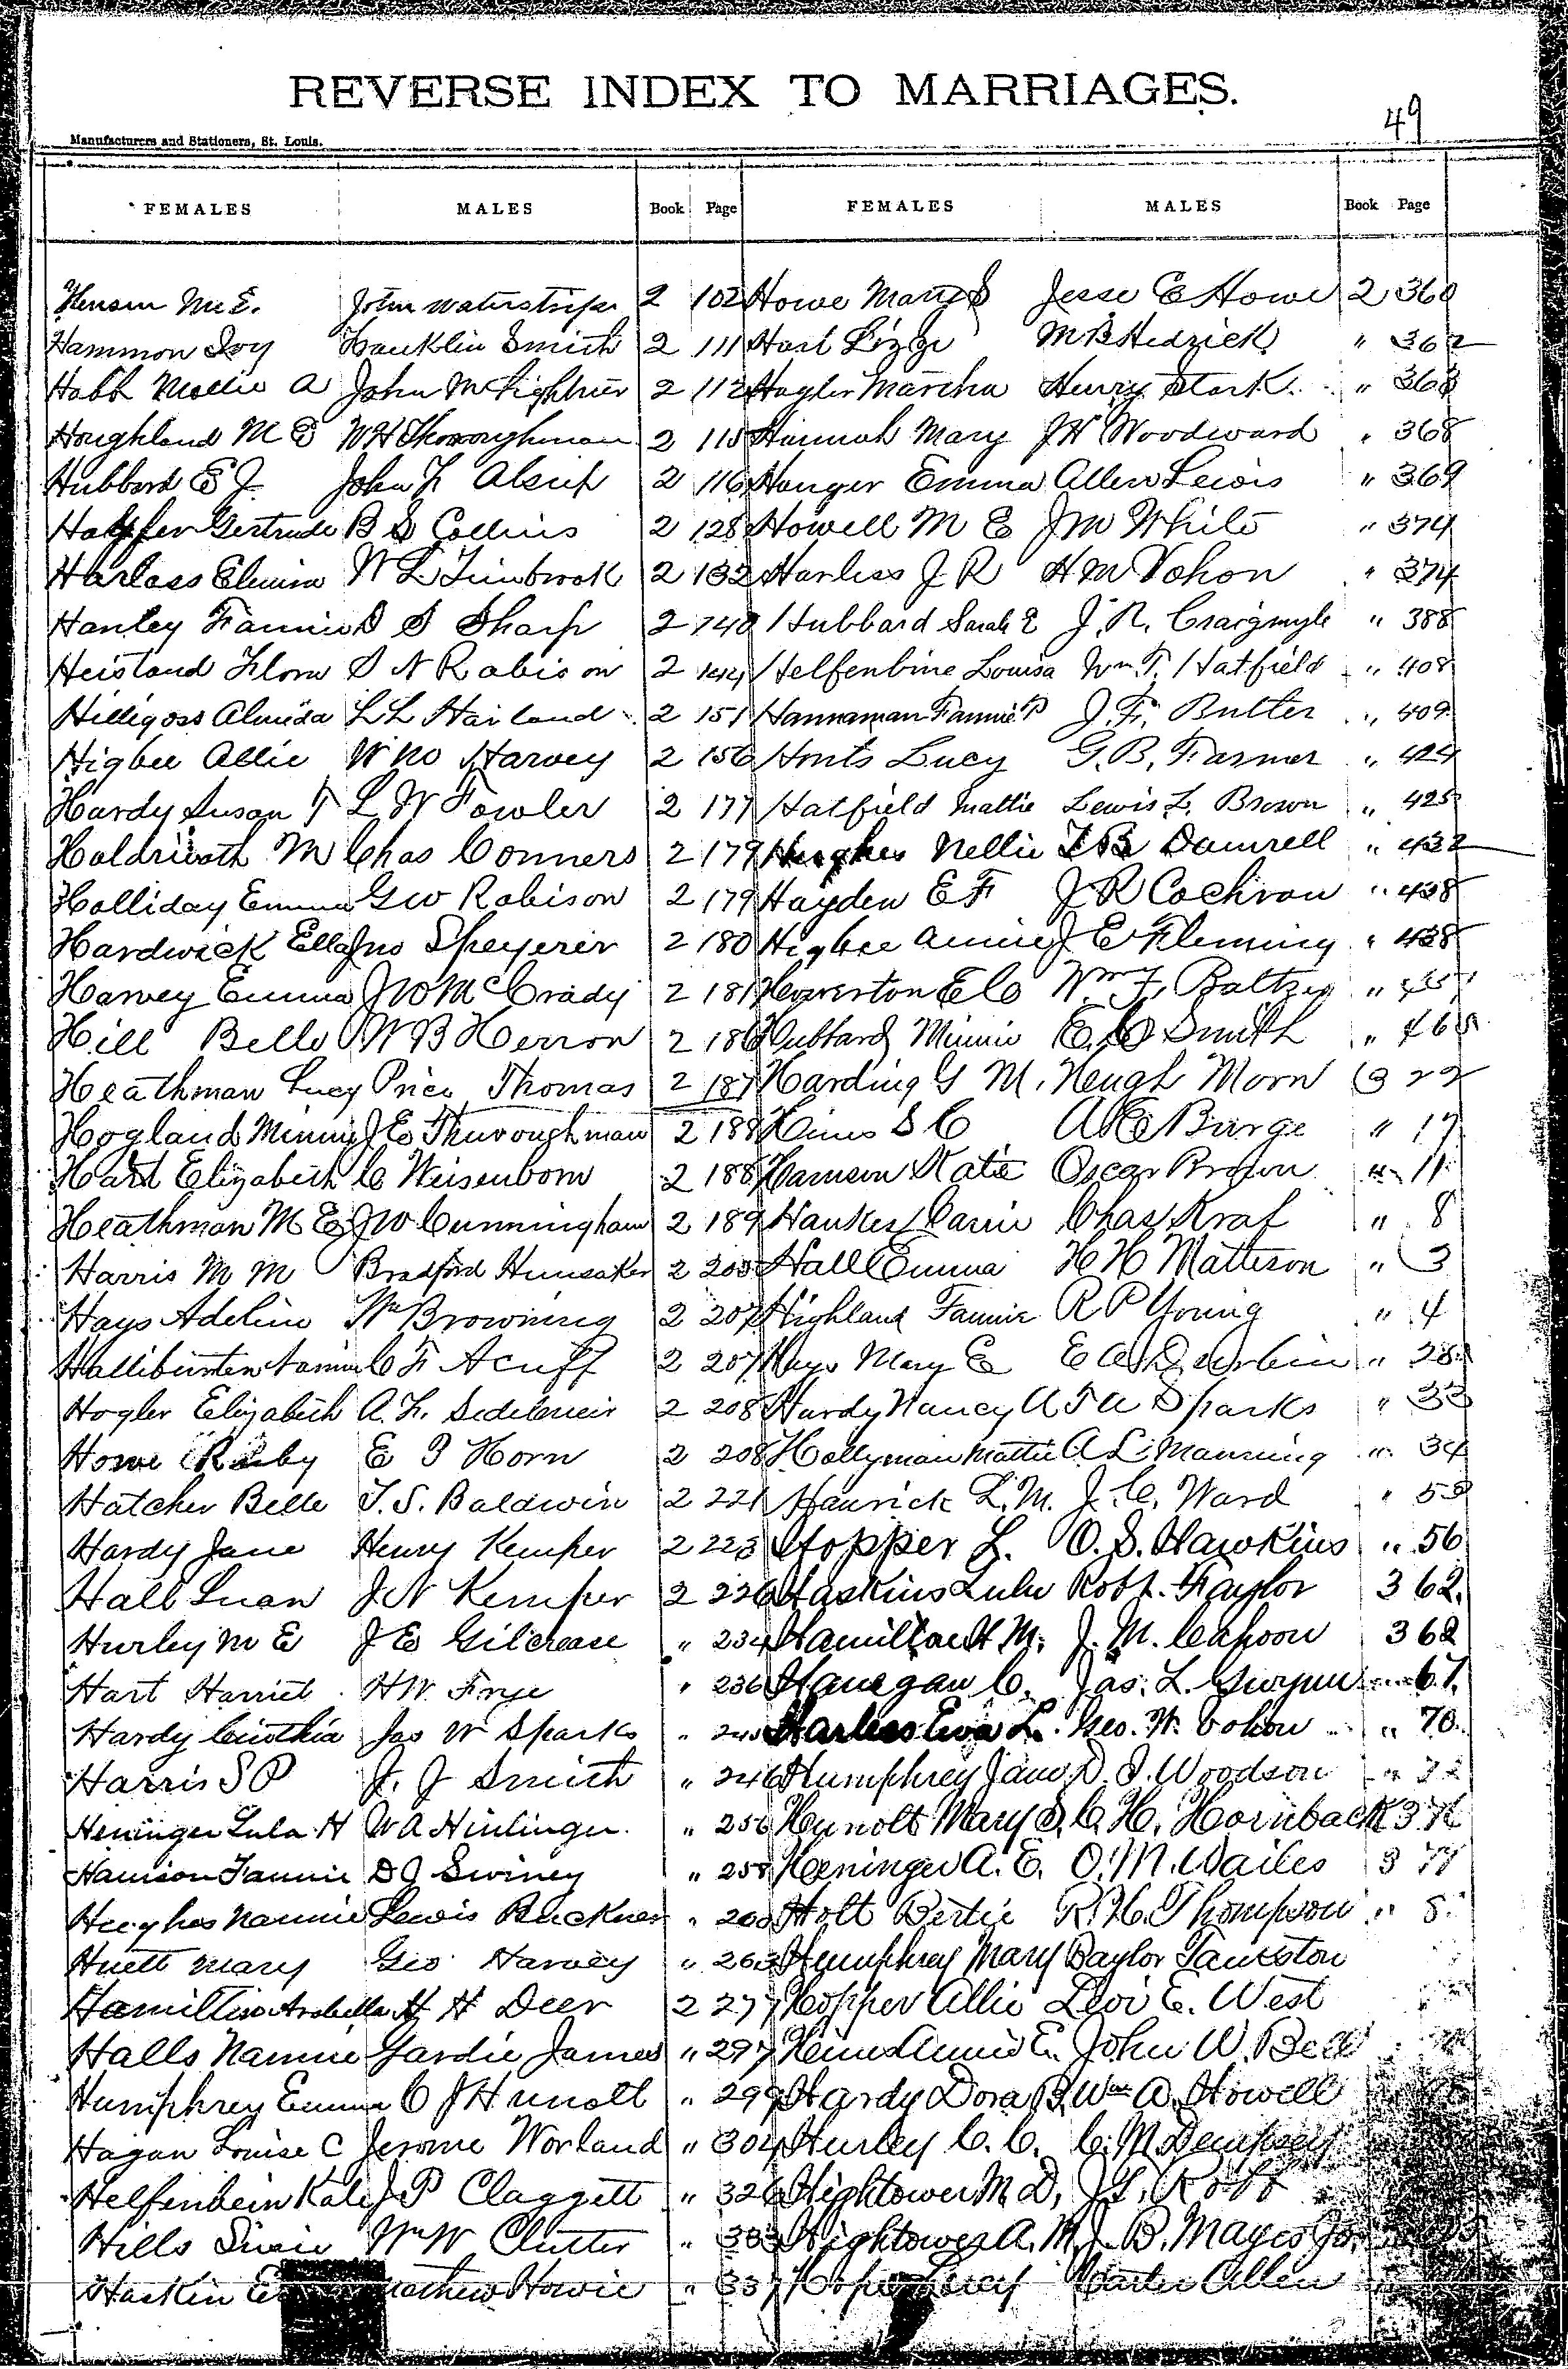 REVERSE INDEX TO MARRIAGES.
49
Manufacturers and Stationers, St. Louis.
FEMALES MALES Book Page FEMALES MALES Book Page
M. E. John 2 102 Howe Mary S Jesse E Howe 2 360
Hammon Ivy Franklin Smith 2 111 Hart Lizzie M B Hedrick " 362
Habb Mollie A John M 2 112 Hagler Martha Henry Stark " 363
Houghland M E W H Thoroughman 2 115 Hannah Mary J H Woodward " 368
Hubbard E J John F Alsup 2 116 Hanger Emma Allen Lewis " 369
Gertrude B S Collins 2 128 Howell M E J M White " 374
Harlass Elmira W L Timbrook 2 132 Harliss J R H M Vohon " 374
Hanley Fannie D S Sharp 2 140 Hubbard Sarah E J. R. Craigmyle " 388
Heistand Flora S N Robison 2 144 Helfenbine Louisa Wm. T. Hatfield " 408
Hilligoss Almida L L Hailand 2 151 Hannaman Fannie P J. F. Butler " 409
Higbee Allie W M Harvey 2 156 Honts Lucy G. B. Farmer " 424
Hardy Susan F L W Fowler 2 177 Hatfield Mattie Lewis L. Brown " 425
M Chas Conners 2 179 Hughes Nellie T B Damrell " 432
Holliday Emma G W Robison 2 179 Hayden E F J R Cochran " 438
Hardwick Ella Jno Speyerer 2 180 Higbee Annie J E Fleming " 438
Harvey Emma J W McCrady 2 181 Howerton E C Wm F. Baltzer "
Hill Belle W B Herron 2 186 Hubbard Minnie E. C Smith "
Heathman Lucy Price Thomas 2 187 Harding G M. Heugh Morn 3 22
Hogland Minnie J E Thuroughman 2 188 Hines S C A E Burge " 17
Hart Elizabeth C Weisenborn 2 188 Harrison Katie Oscar Brown " 11
Heathman M E J W Cunningham 2 189 Hankes Carrie Chas Kraf " 8
Harris M M Bradford Hunsaker 2 Hall Emma H H Matteson " 3
Hays Adeline Wm Browning 2 207 Highland Fannie R P Young " 4
Halliburton Fannie C F Acuff 2 207 Hays Mary E E A Durbin " 28
Hogler Elizabeth A. F. 2 208 Hardy Nancy A F A Sparks " 33
Howe Ruby E T Horn 2 208 Hollyman Mattie A L Manning " 34
Hatcher Belle T. S. Baldwin 2 221 Hanrick L. M. J. C. Ward "
Hardy Jane Henry Kemper 2 223 Hopper L. O. S. Hawkins " 56
Hall Luan J N Kemper 2 226 Haskins Lulu Robt. Traylor 3 62.
Hurley M E J E Gilcrease " 234 Hamilton H M. J. M. Cahoon 3 62
Hart Harriet H W. Frye " 236 Hanegan C. Jas. L. " 67.
Hardy Cinthia Jas W Sparks " Harless Eva L. Geo. W. Vohon " 70.
Harris S P J. J Smith " 246 Humphrey Jane D. S. Woodson "
Heninger Lula H W A " 256 Mary S. C. H. Hornback 3
Harrison Fannie D J Swiney " 258 Heninger A. E. O. M. Wailes 3 77
Hughes Nannie Lewis Buckner " Holt Bertie R. H. Thompson "
Huett Mary Geo Harvey " 263 Humphrey Mary Baylor Tankston
Hamilton Arabella H H Deer 2 277 Hopper Allie Levi E. West
Halls Nannie Gardie James " 297 Hines Annie E. John W. Bell
Humphrey Emma C J Hunolt " 299 Hardy Dora B. Wm A. Howell
Hagan Louise C Jerome Worland " 304 Hurley C. C. C. M. Dempsey
Helfenbein Kate J P Claggett " 326 Hightower M. D. J. T.
Hills Susie Wm W Clutter " 333 Hightower A. M. J. B. Mayes Jr.
Haskin Howie " 337 Hope Lucy Allen